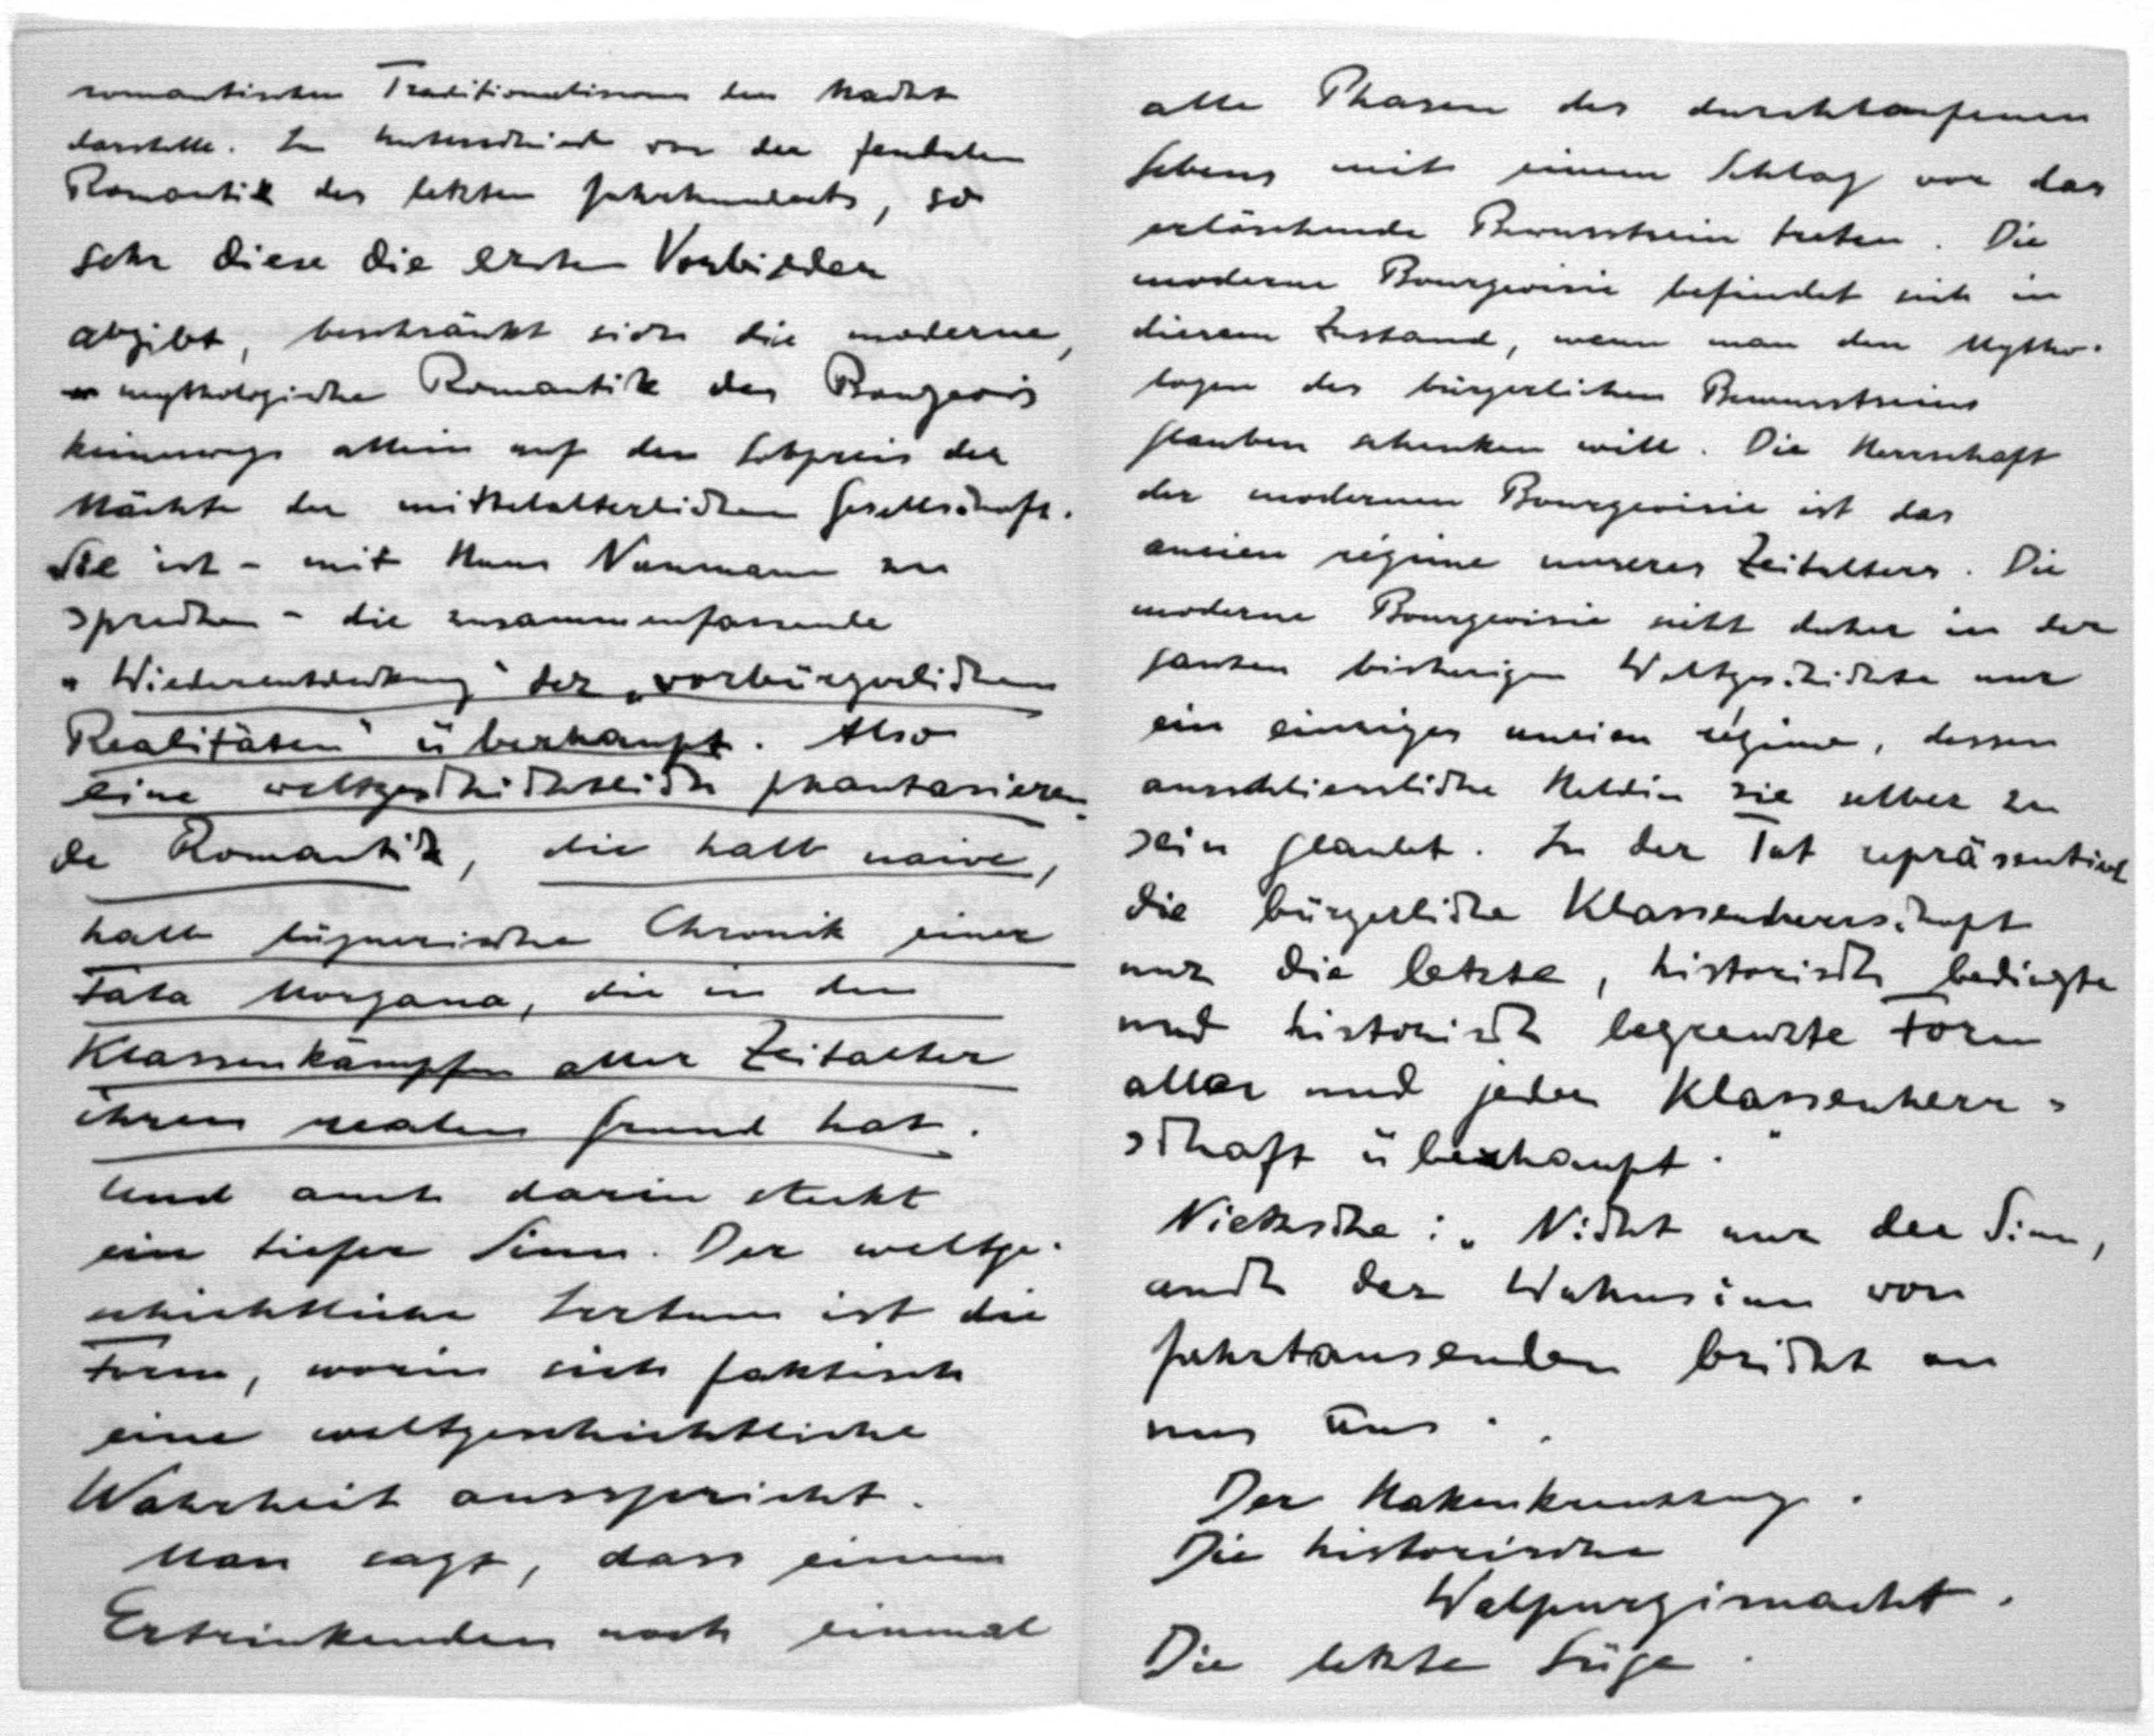 romantischen Traditionalismus der Macht
darstelle. Im Unterschied von der feudalen
Romantik des letzten Jahrhunderts, so
sehr diese die ersten Vorbilder
abgibt, beschränkt sich die moderne,
mythologische Romantik des Bourgeois
keineswegs allein auf den Lobpreis der
Mächte der mittelalterlichen Gesellschaft.
Sie ist - mit Hans Naumann zu
sprechen - die zusammenfassende
„Wiederentdeckung" der „vorbürgerlichen
Realitäten" überhaupt. Also
eine weltgeschichtlich phantasieren-
de Romantik, die halb naive,
halb lügnerische Chronik einer
Fata Morgana, die in den
Klassenkämpfen aller Zeitalter
ihren realen Grund hat.
Und auch darin steckt
ein tiefer Sinn. Der weltge-
schichtliche Irrtum ist die
Form, worin sich faktisch
eine weltgeschichtliche
Wahrheit ausspricht.
Man sagt, dass einem
Ertrinkenden noch einmal
alle Phasen des durchlaufenen
Lebens mit einem Schlag vor das
erlöschende Bewusstsein treten. Die
moderne Bourgeoisie befindet sich in
diesem Zustand, wenn man den Mytho-
logen des bürgerlichen Bewusstseins
Glauben schenken will. Die Herrschaft
der modernen Bourgeoisie ist das
ancien régime unseres Zeitalters. Die
moderne Bourgeoisie sieht daher in der
ganzen bisherigen Weltgeschichte nur
ein einziges ancien régime, dessen
ausschliessliche Heldin sie selber zu
sein glaubt. In der Tat repräsentiert
die bürgerliche Klassenherrschaft
nur die letzte, historisch bedingte
und historisch begrenzte Form
aller und jeder Klassenherr-
schaft überhaupt."
Nietzsche: „Nicht nur der Sinn,
auch der Wahnsinn von
Jahrtausenden bricht an
uns aus".
Der Hakenkreuzzug.
Die historische
Walpurgisnacht.
Die letzte Lüge.